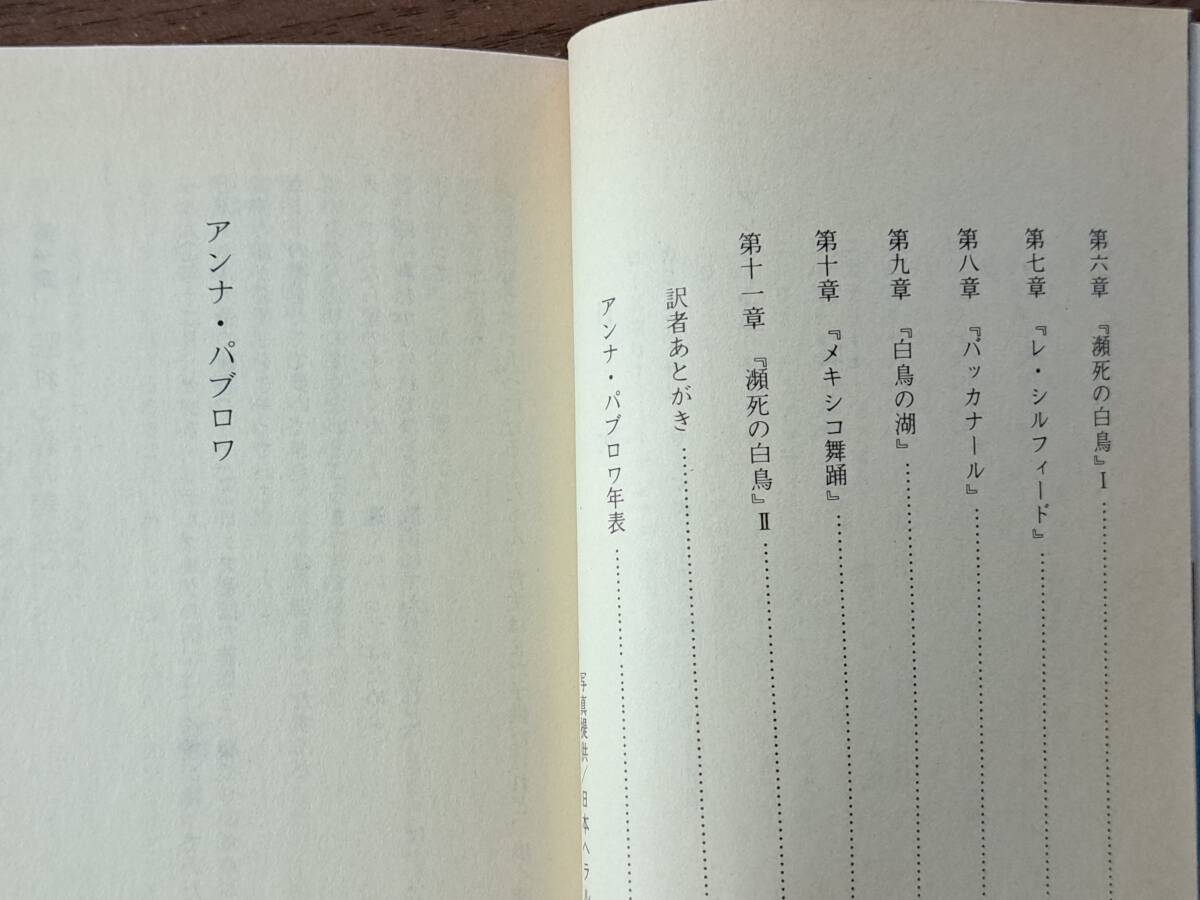 第六章 『瀕死の白鳥』Ⅰ
第七章 『レ・シルフィード』
第八章 『バッカナール』
第九章 『白鳥の湖』
第十章 『メキシコ舞踊』
第十一章 『瀕死の白鳥』Ⅱ
訳者あとがき
アンナ・パブロワ年表
写真提供／日本ヘラル
アンナ・パブロワ